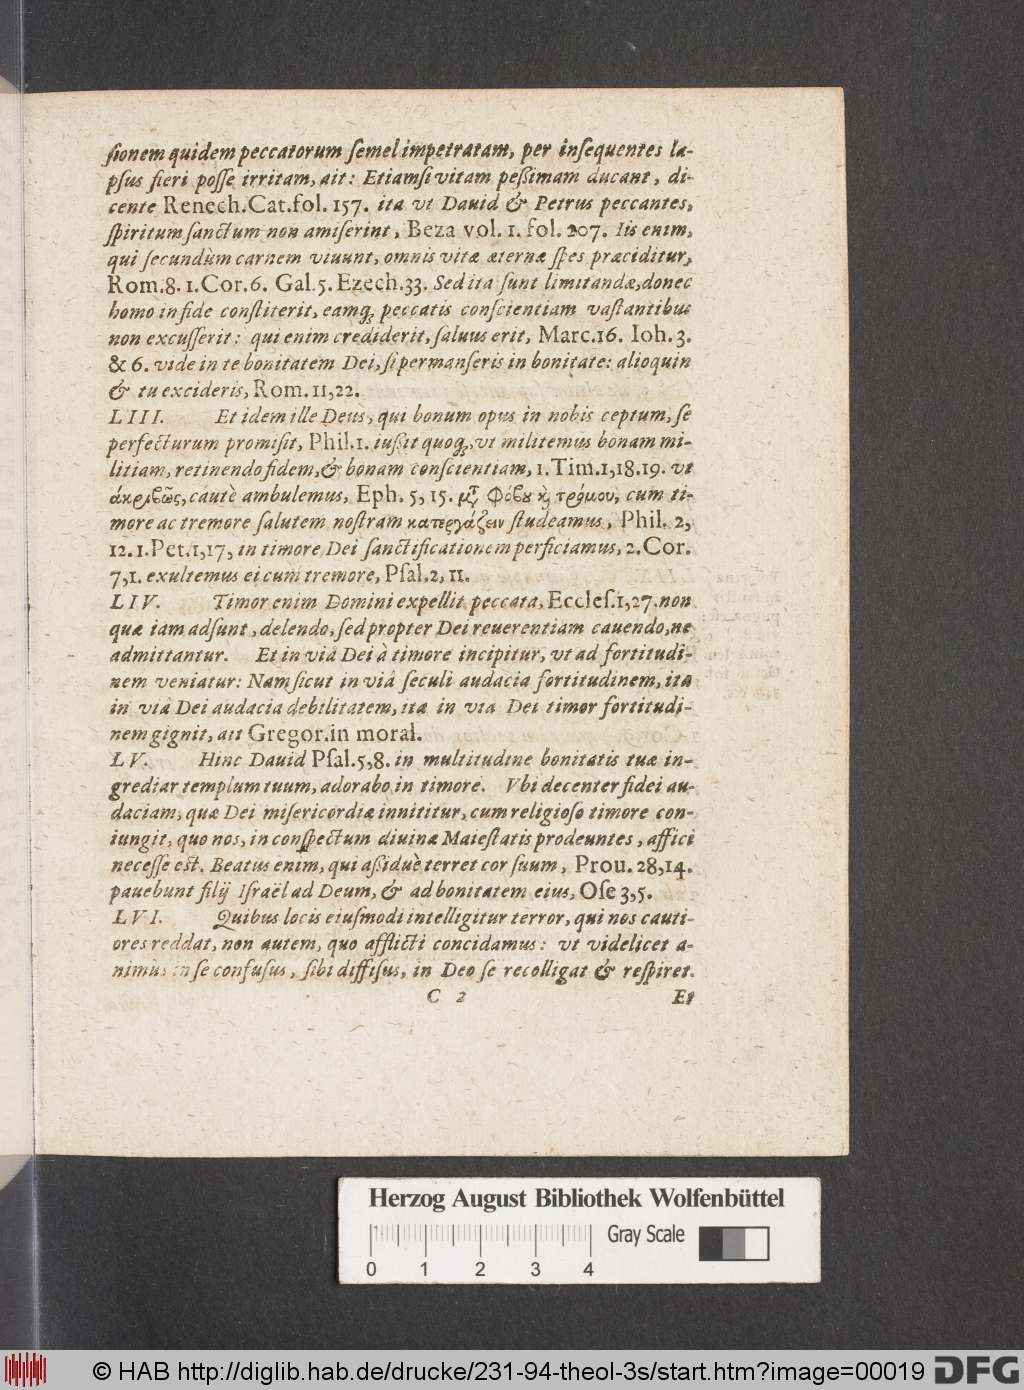 ſionem quidem peccatorum ſemel impetratam, per inſequentes la-
pſus fieri poſſe irritam, ait: Etiamſi vitam peßimam ducant, di-
cente Renech. Cat. fol. 157. ita vt Dauid & Petrus peccantes,
ſpiritum ſanctum non amiſerint, Beza vol. 1. fol. 207. Iis enim,
qui ſecundùm carnem viuunt, omnis vitæ æternæ ſpes præciditur,
Rom. 8. 1. Cor. 6. Gal. 5. Ezech. 33. Sed ita ſunt limitandæ, donec
homo in fide conſtiterit, eamq; peccatis conſcientiam vaſtantibus
non excuſſerit: qui enim crediderit, ſaluus erit, Marc. 16. Ioh. 3.
& 6. vide in te bonitatem Dei, ſi permanſeris in bonitate: alioquin
& tu excideris, Rom. 11, 22.
LIII. Et idem ille Deus, qui bonum opus in nobis ceptum, ſe
perfecturum promiſit, Phil. 1. iußit quoq;, vt militemus bonam mi-
litiam, retinendo fidem, & bonam conſcientiam, 1. Tim. 1, 18. 19. vt
ἀκριβῶς, cautè ambulemus, Eph. 5, 15. μτ̃ Φόβȣ κ̀ τρόμου, cum ti-
more ac tremore ſalutem noſtram κατεργάζειν ſtudeamus, Phil. 2,
12. 1. Pet. 1, 17, in timore Dei ſanctificationem perficiamus, 2. Cor.
7, 1. exultemus ei cum tremore, Pſal. 2, 11.
LIV. Timor enim Domini expellit peccata, Eccleſ. 1, 27. non
quæ iam adſunt, delendo, ſed propter Dei reuerentiam cauendo, ne
admittantur. Et in viâ Dei à timore incipitur, vt ad fortitudi-
nem veniatur: Nam ſicut in viâ ſeculi audacia fortitudinem, ita
in viâ Dei audacia debilitatem, ita in via Dei timor fortitudi-
nem gignit, ait Gregor. in moral.
LV. Hinc Dauid Pſal. 5, 8. in multitudine bonitatis tuæ in-
grediar templum tuum, adorabo in timore. Vbi decenter fidei au-
daciam, quæ Dei miſericordiæ innititur, cum religioſo timore con-
iungit, quo nos, in conſpectum diuinæ Maieſtatis prodeuntes, affici
neceſſe eſt. Beatus enim, qui aßiduè terret cor ſuum, Prou. 28, 14.
pauebunt filij Iſraël ad Deum, & ad bonitatem eius, Oſe 3, 5.
LVI. Quibus locis eiuſmodi intelligitur terror, qui nos cauti-
ores reddat, non autem, quo afflicti concidamus: vt videlicet a-
nimus in ſe confuſus, ſibi diffiſus, in Deo ſe recolligat & reſpiret.
C 2 Et
Herzog August Bibliothek Wolfenbüttel
Gray Scale
0 1 2 3 4
© HAB http://diglib.hab.de/drucke/231-94-theol-3s/start.htm?image=00019 DFG